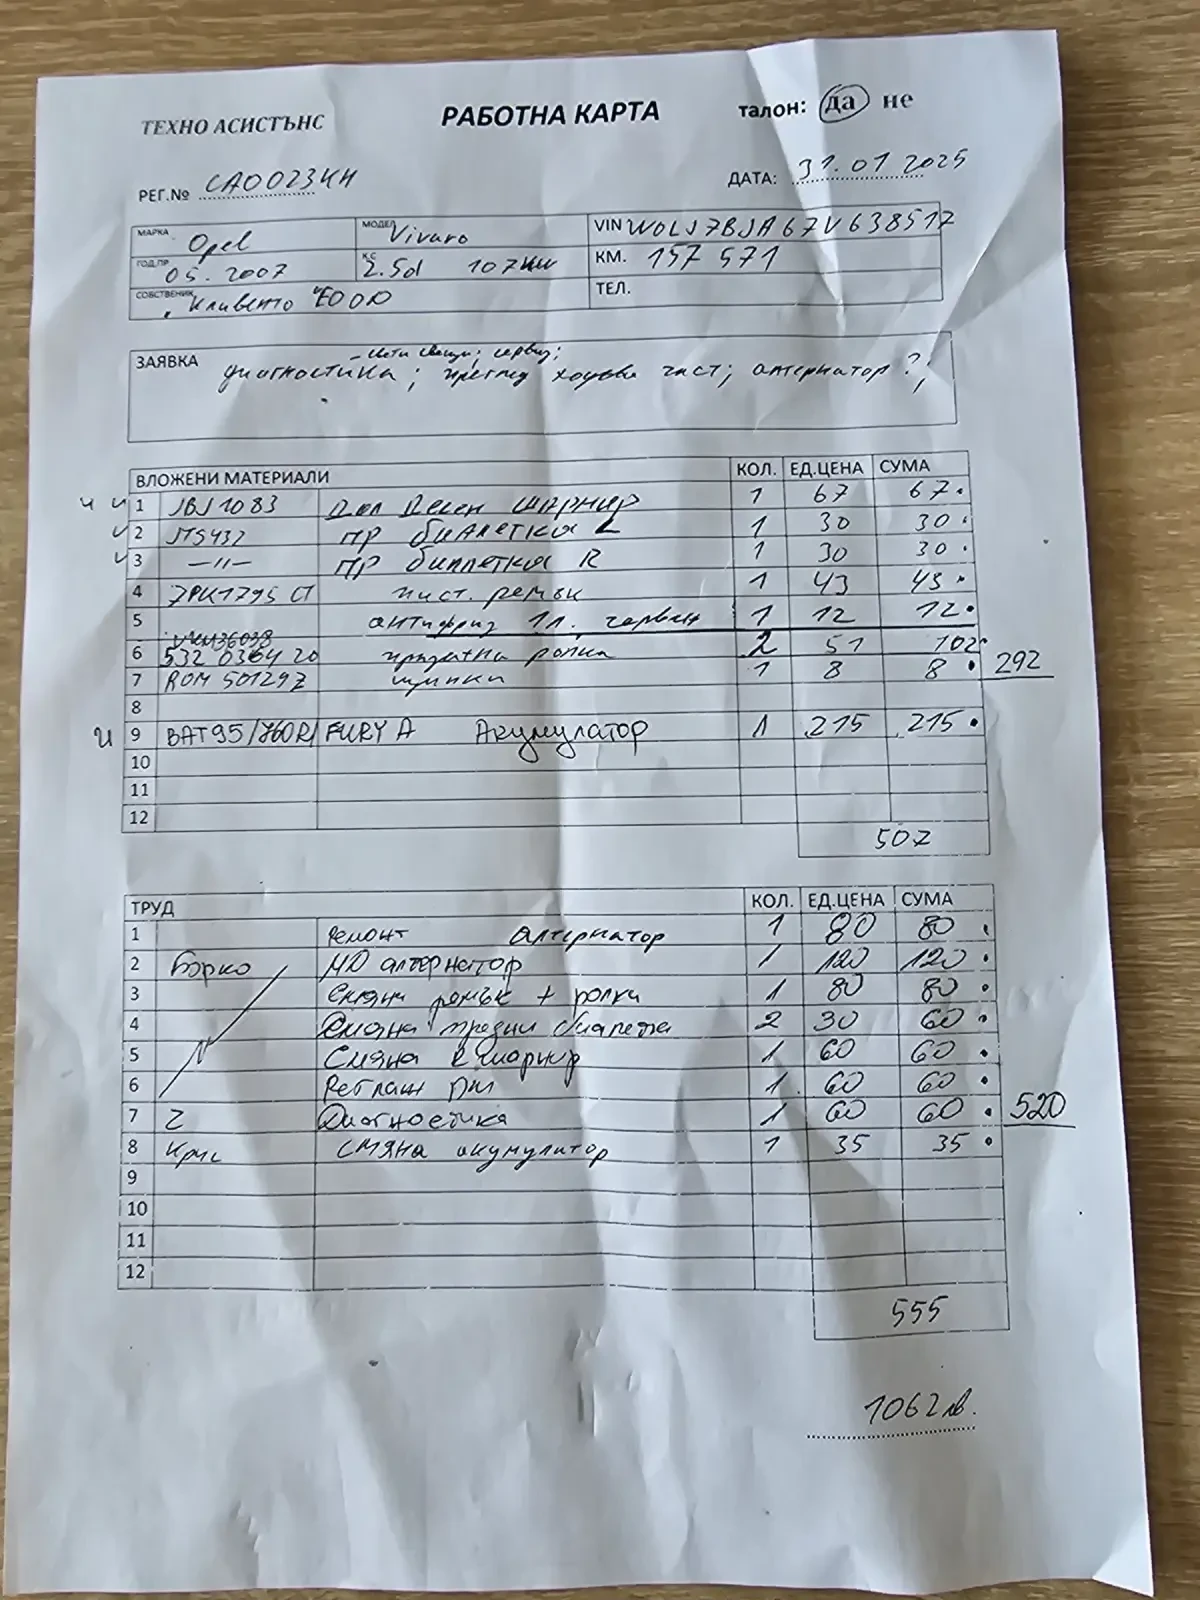 ТЕХНО АСИСТЪНС РАБОТНА КАРТА талон: да не
РЕГ.№ СА0023НН ДАТА: 31.01 2025
МАРКА Opel МОДЕЛ Vivaro VIN W0LJ7BJA67V638517
ГОД.ПР 05. 2007 К.С 2.5d 107KW КМ. 157 571
СОБСТВЕНИК ЕООД ТЕЛ.
свещи; сервиз;
ЗАЯВКА диагностика; преглед ходова част; алтернатор?;
ВЛОЖЕНИ МАТЕРИАЛИ КОЛ. ЕД.ЦЕНА СУМА
1 JBJ1083 Дол Десен Шарнир 1 67 67.
2 JTS437 ПР биалетка L 1 30 30.
3 —"— ПР биалетка R 1 30 30.
4 7PK1795 CT пист. ремък 1 43 43.
5 антифриз 1л. червен 1 12 12.
VKM36038
6 532 0364 20 ролка 2 51 102.
7 ROM 50129Z щипки 1 8 8. 292
8
9 BAT95/760R/ FURY A Акумулатор 1 215 215.
10
11
12
507
ТРУД КОЛ. ЕД.ЦЕНА СУМА
1 Ремонт алтернатор 1 80 80.
2 Борко МД алтернатор 1 120 120.
3 Смяна ремък + ролки 1 80 80.
4 Смяна предни биалетки 2 30 60.
5 Смяна R шарнир 1 60 60.
6 Реглаж 1 60 60.
7 Диагностика 1 60 60. 520
8 Крис смяна акумулатор 1 35 35.
9
10
11
12
555
1062 лв.